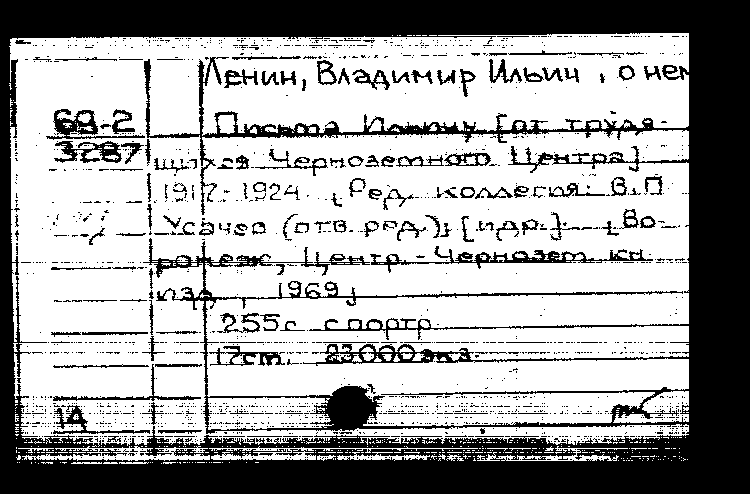 Ленин, Владимир Ильич, о нем
69-2
3287
Письма Ильичу [от трудя-
щихся Черноземного Центра]
1917-1924. [Ред. коллегия: В.П.
Усачев (отв. ред.); [и др.]. [Во-
ронеж, Центр.-Чернозем. кн.
изд., 1969]
255с. с портр.
17см. 23000экз.
14